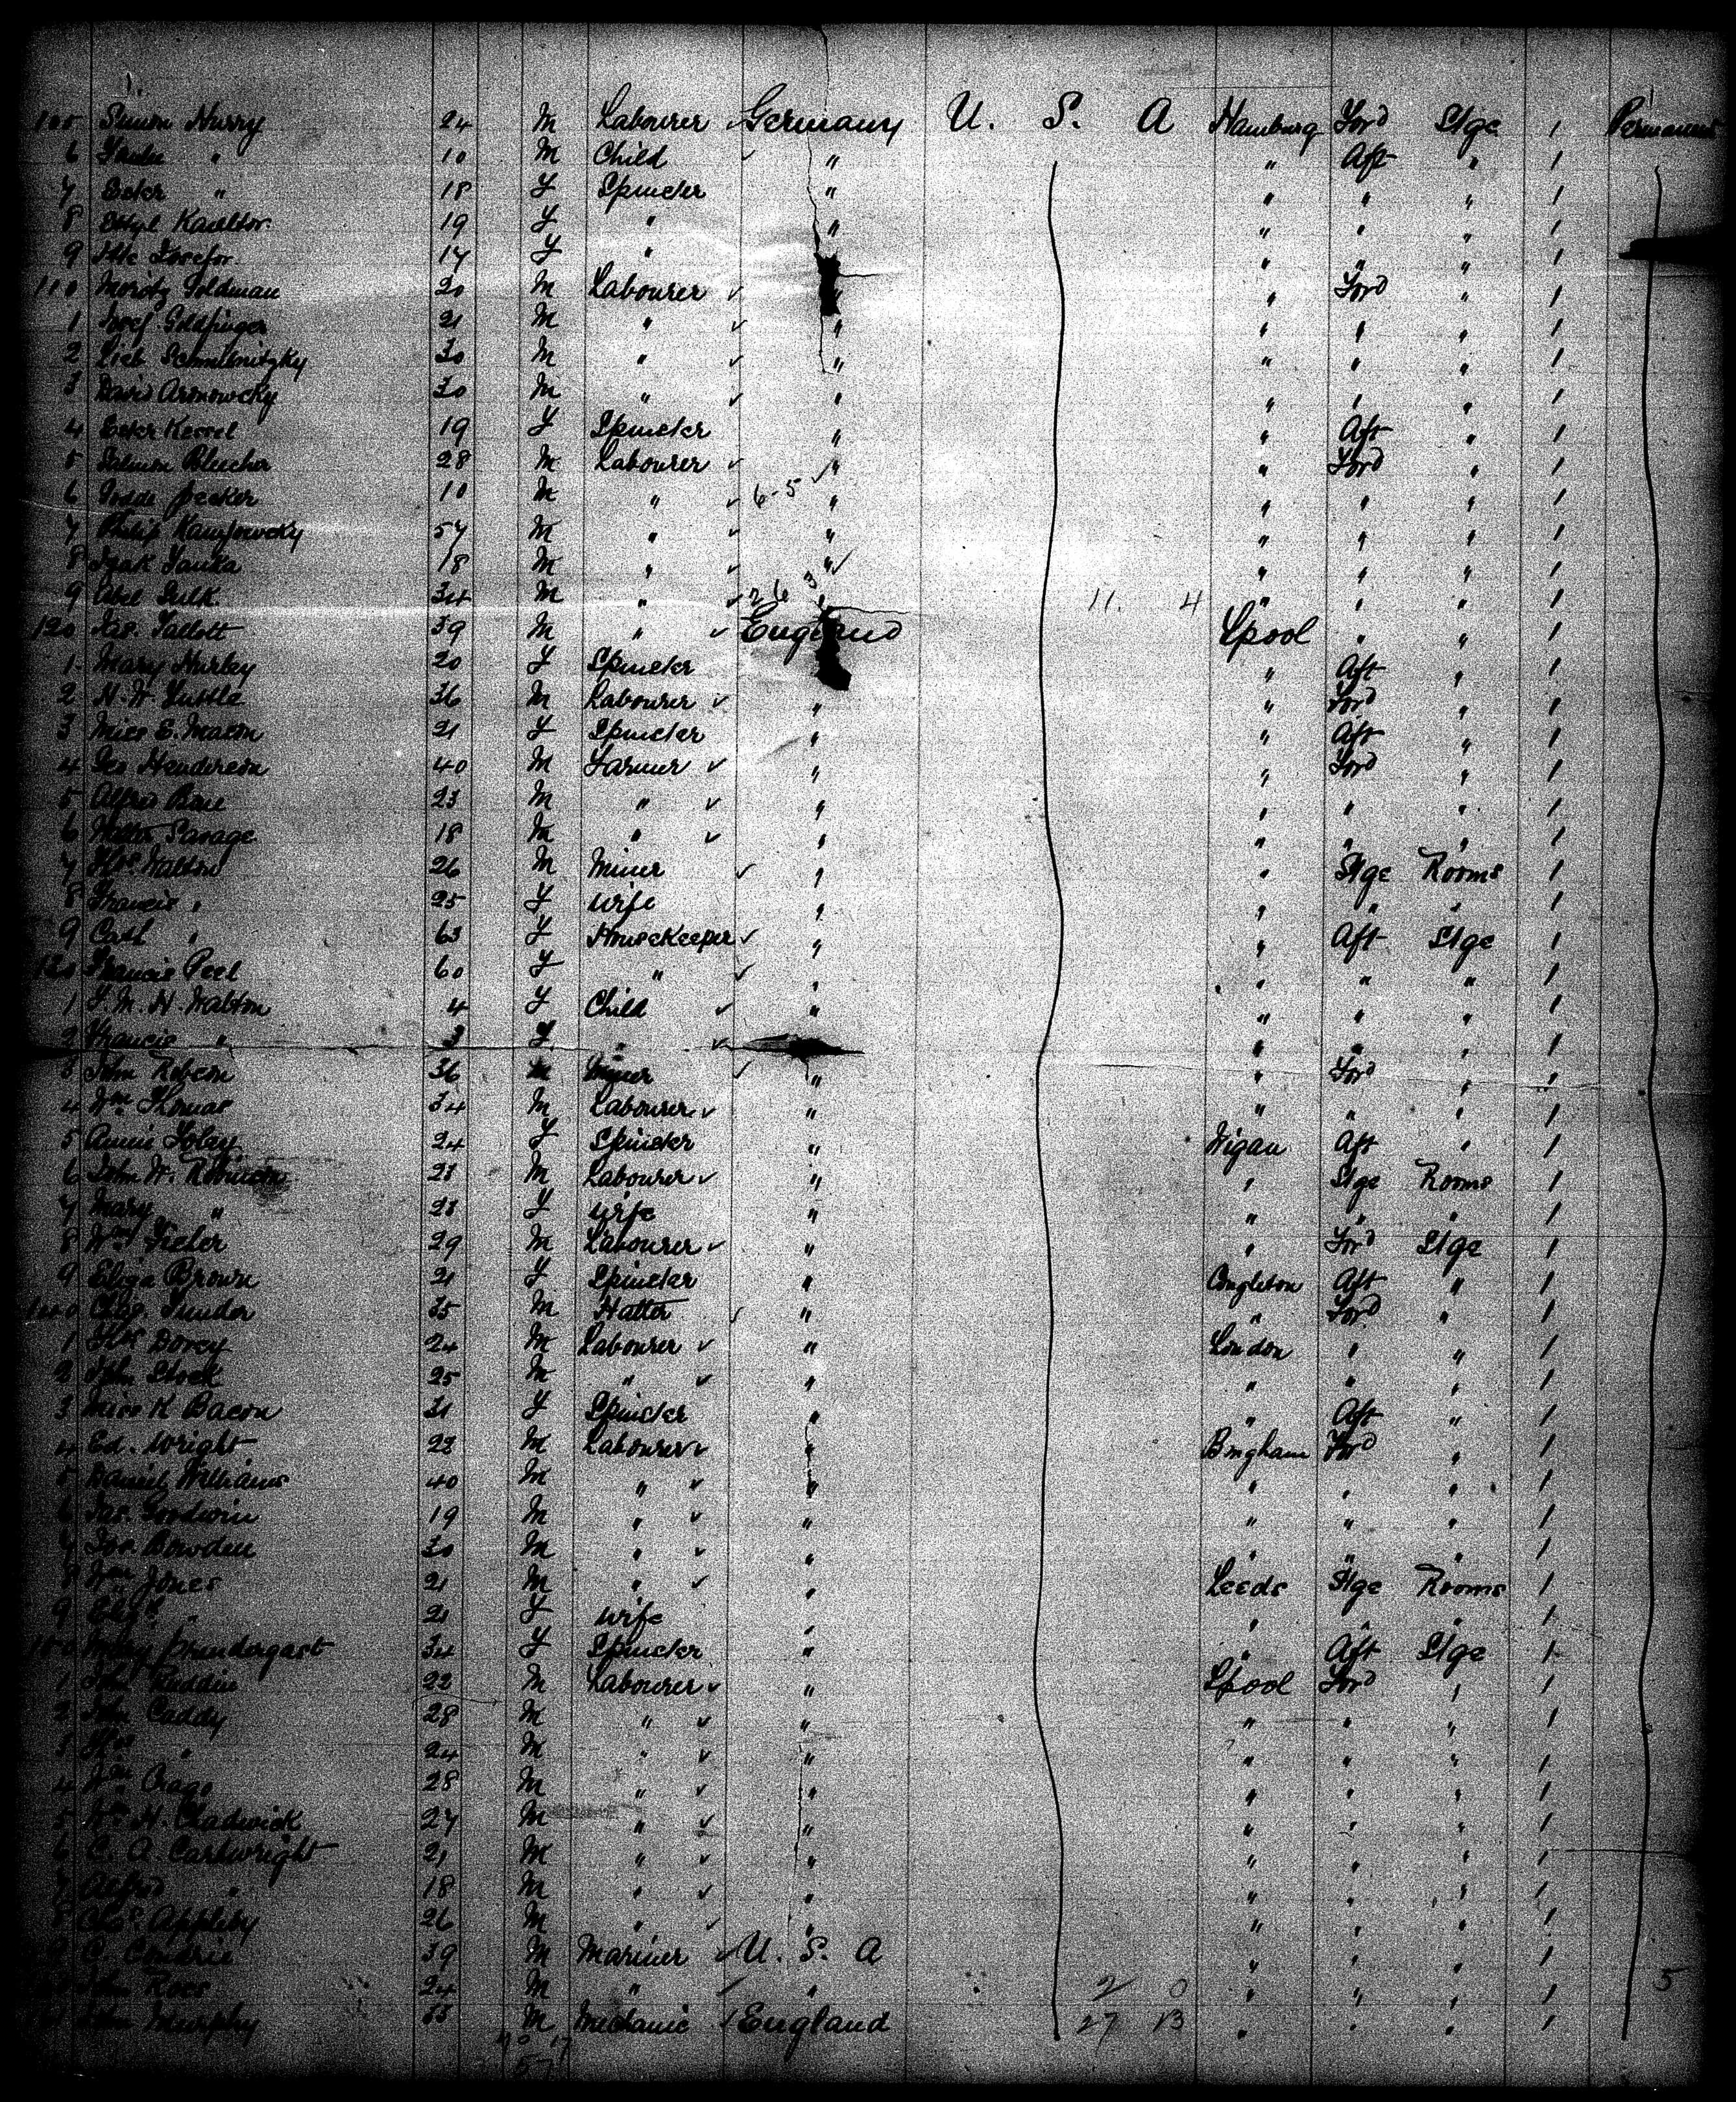 105 Simon Hurry 24 M Labourer ✓ Germany U. S. A Hamburg Ford Stge 1 Permanent
6 " 10 M Child ✓ " " Aft " 1
7 Ester " 18 F Spinster " " " " 1
8 19 F " " " " " 1
9 17 F " " " " " 1
110 Moritz Goldman 20 M Labourer ✓ " " Ford " 1
1 Josef Goldfinger 21 M " ✓ " " " " 1
2 30 M " ✓ " " " " 1
3 David Aronowsky 30 M " ✓ " " " " 1
4 Ester Kessel 19 F Spinster " " Aft " 1
5 Salmon Bleecher 28 M Labourer ✓ " " Ford " 1
6 Becker 10 M " ✓ 6-5 ✓ " " " " 1
7 Philip 57 M " ✓ " " " " 1
8 18 M " ✓ " ✓ " " " 1
9 Abel 34 M " ✓ 26 3 11. 4 " " " 1
120 Jas. Tallott 39 M " ✓ England Lpool " " 1
1 Mary Hurley 20 F Spinster " " Aft " 1
2 H. W. 36 M Labourer ✓ " " Ford " 1
3 Miss E. Mason 21 F Spinster " " Aft " 1
4 Geo Henderson 40 M Farmer ✓ " " Ford " 1
5 Alfred 23 M " ✓ " " " " 1
6 Walter Savage 18 M " ✓ " " " " 1
7 Thos Walton 26 M Miner ✓ " " Stge Rooms 1
8 Francis " 25 F Wife " " " " 1
9 Cath " 63 F Housekeeper ✓ " " Aft Stge 1
130 Francis Peel 60 F " ✓ " " " " 1
1 F. M. H. Walton 4 F Child ✓ " " " " 1
2 Francis " 3 F " ✓ " " " " 1
3 John Robson 36 M Miner ✓ " " Ford " 1
4 Wm Thomas 34 M Labourer ✓ " " " " 1
5 Annie Foley 24 F Spinster " Wigan Aft " 1
6 John W. Robinson 28 M Labourer ✓ " " Stge Rooms 1
7 Mary " 28 F Wife " " " " 1
8 Wm 29 M Labourer ✓ " " Ford Stge 1
9 Eliza Brown 21 F Spinster " Congleton Aft " 1
140 Chas. 35 M Hatter ✓ " " Ford " 1
1 Thos Dorcy 24 M Labourer ✓ " London " " 1
2 John Stock 25 M " ✓ " " " " 1
3 Miss K Bacon 31 F Spinster " " Aft " 1
4 Ed. Wright 28 M Labourer ✓ " Bmgham Ford " 1
5 Daniel Williams 40 M " ✓ " " " " 1
6 Jas. Goodwin 19 M " ✓ " " " " 1
7 Jos. Bowden 30 M " ✓ " " " " 1
8 Wm Jones 21 M " ✓ " Leeds Stge Rooms 1
9 " 21 F Wife " " " " 1
150 Mary Prendergast 34 F Spinster " " Aft Stge 1
1 John Ruddin 22 M Labourer ✓ " Lpool Ford " 1
2 John Caddy 28 M " ✓ " " " " 1
3 Thos " 24 M " ✓ " " " " 1
4 Wm 28 M " ✓ " " " " 1
5 Wm H. Chadwick 27 M " ✓ " " " " 1
6 C. A. Cartwright 21 M " ✓ " " " " 1
7 Alfred " 18 M " ✓ " " " " 1
8 Chas Appleby 26 M " ✓ " " " " 1
9 C. 39 M Mariner ✓ U. S. A " " " 1
John Ross 24 M " ✓ " 2 0 " " " 1 5
John Murphy 35 M Mechanic ✓ England 27 13 " " " 1
40 17
57